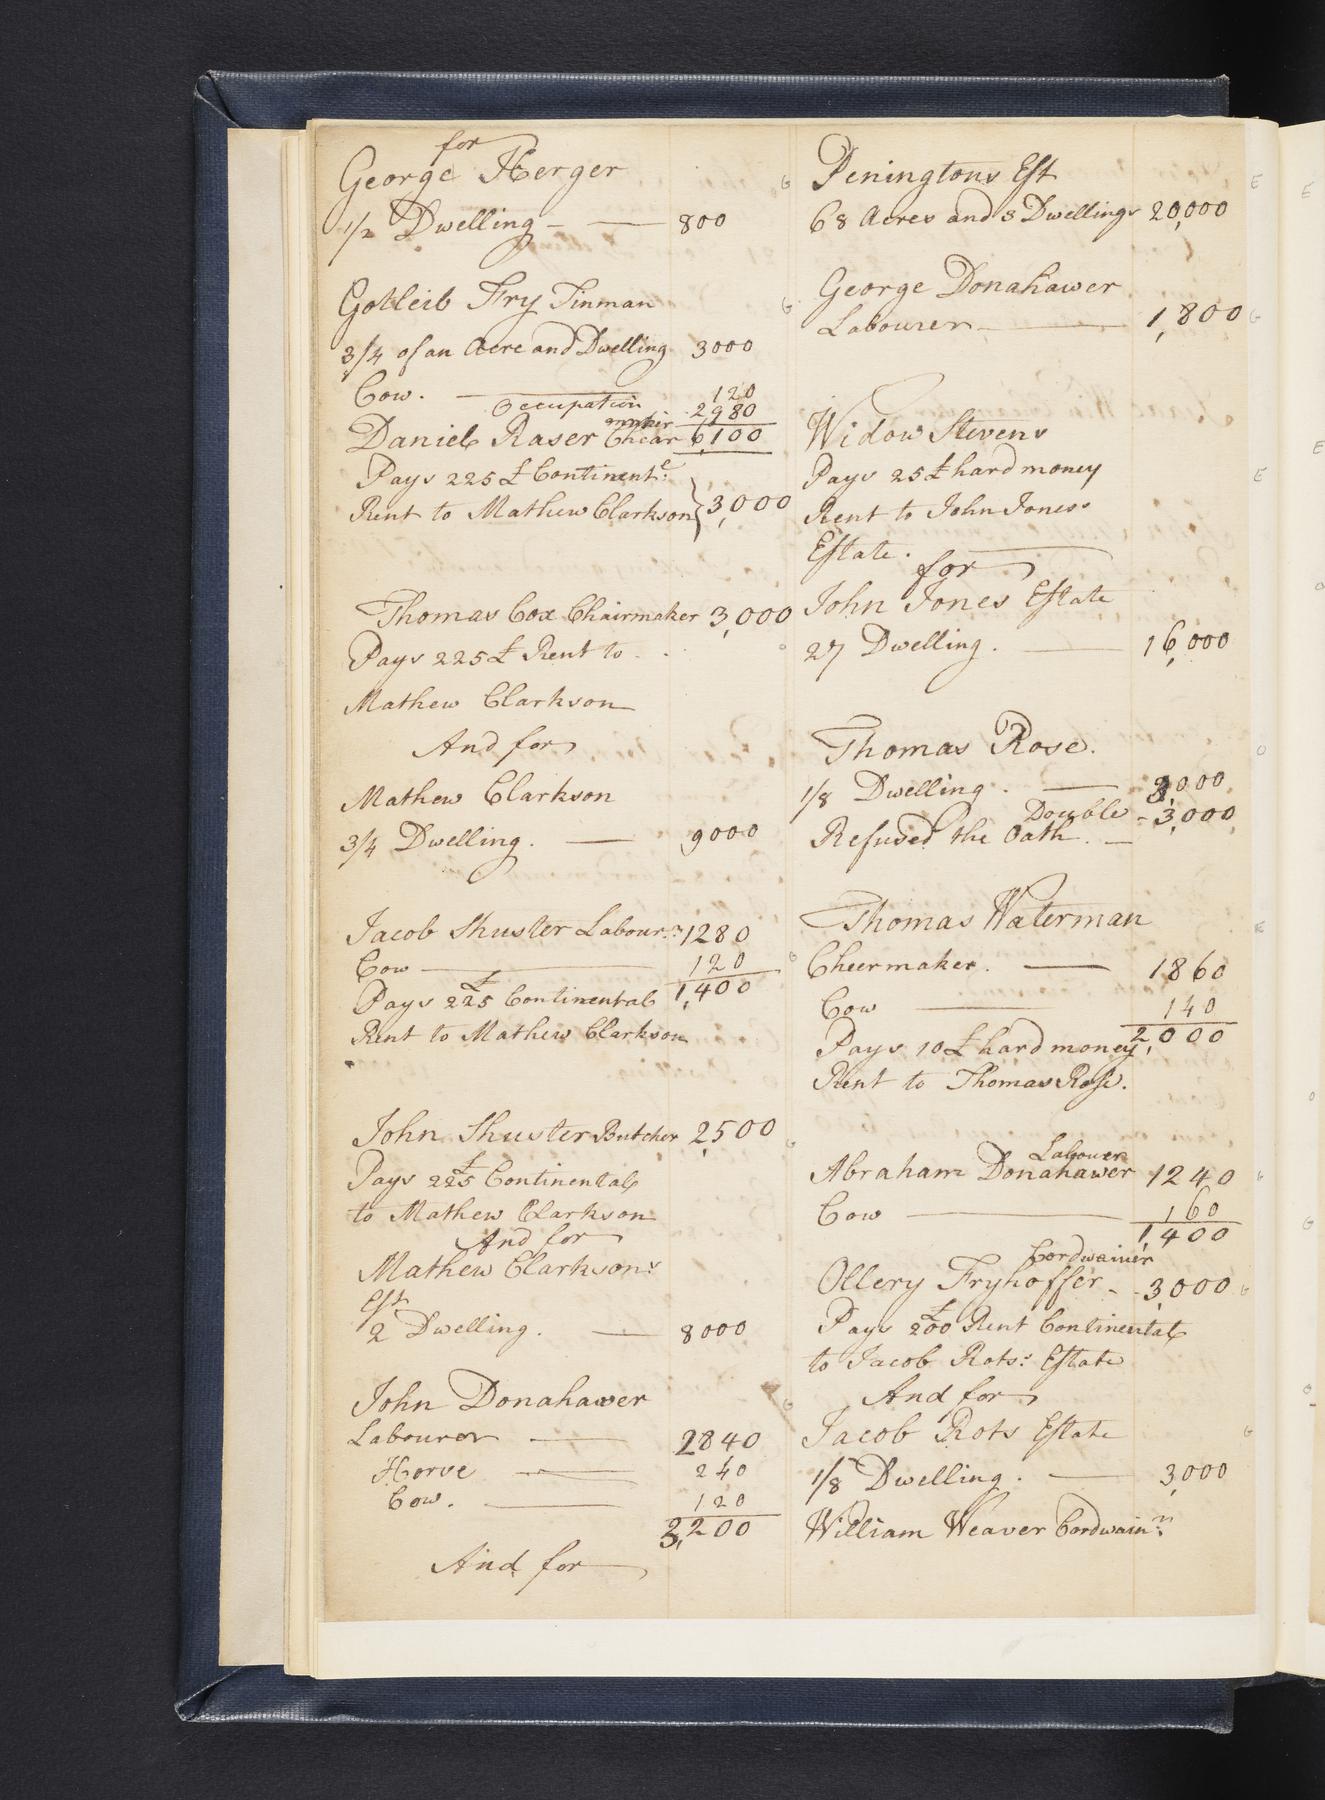 for
George Herger
1/2 Dwelling - — 800
Gotleib Fry Tinman
3/4 of an Acre and Dwelling 3000
Cow. — 120
Occupation 2980
maker
Daniel Raser Chear 6,100
Pays 225 £ Continent.l
Rent to Mathew Clarkson } 3,000
Thomas Cox Chairmaker 3,000
Pays 225 £ Rent to
Mathew Clarkson
And for
Mathew Clarkson
3/4 Dwelling. — 9000
Jacob Shuster Labour.r 1280
Cow — 120
Pays 225 £ Continental 1,400
Rent to Mathew Clarkson
John Shuster Butcher 2,500
Pays 225 £ Continental
to Mathew Clarkson
And for
Mathew Clarksons
Est
2 Dwelling. — 8000
John Donahawer
Labourer — 2840
Horse — 240
Cow. — 120
3,200
And for
Peningtons Est
68 Acres and 3 Dwellings 20,000
George Donahawer
Labourer — 1,800
Widow Stevens
Pays 25 £ hard money
Rent to John Joness
Estate.
for
John Jones Estate
27 Dwelling. — 16,000
Thomas Rose.
1/8 Dwelling. — 3,000
Double - 3,000
Refused the Oath. —
Thomas Waterman
Cheermaker. — 1860
Cow — 140
Pays 10 £ hard money 2,000
Rent to Thomas Rose.
Labouer
Abraham Donahawer 1240
Cow — 160
1,400
Cordwainer
Ollery Fryhoffer - - 3,000
Pays 200 £ Rent Continental
to Jacob Rots: Estate
And for
Jacob Rots Estate
1/8 Dwelling. — 3,000
William Weaver Cordwain.r